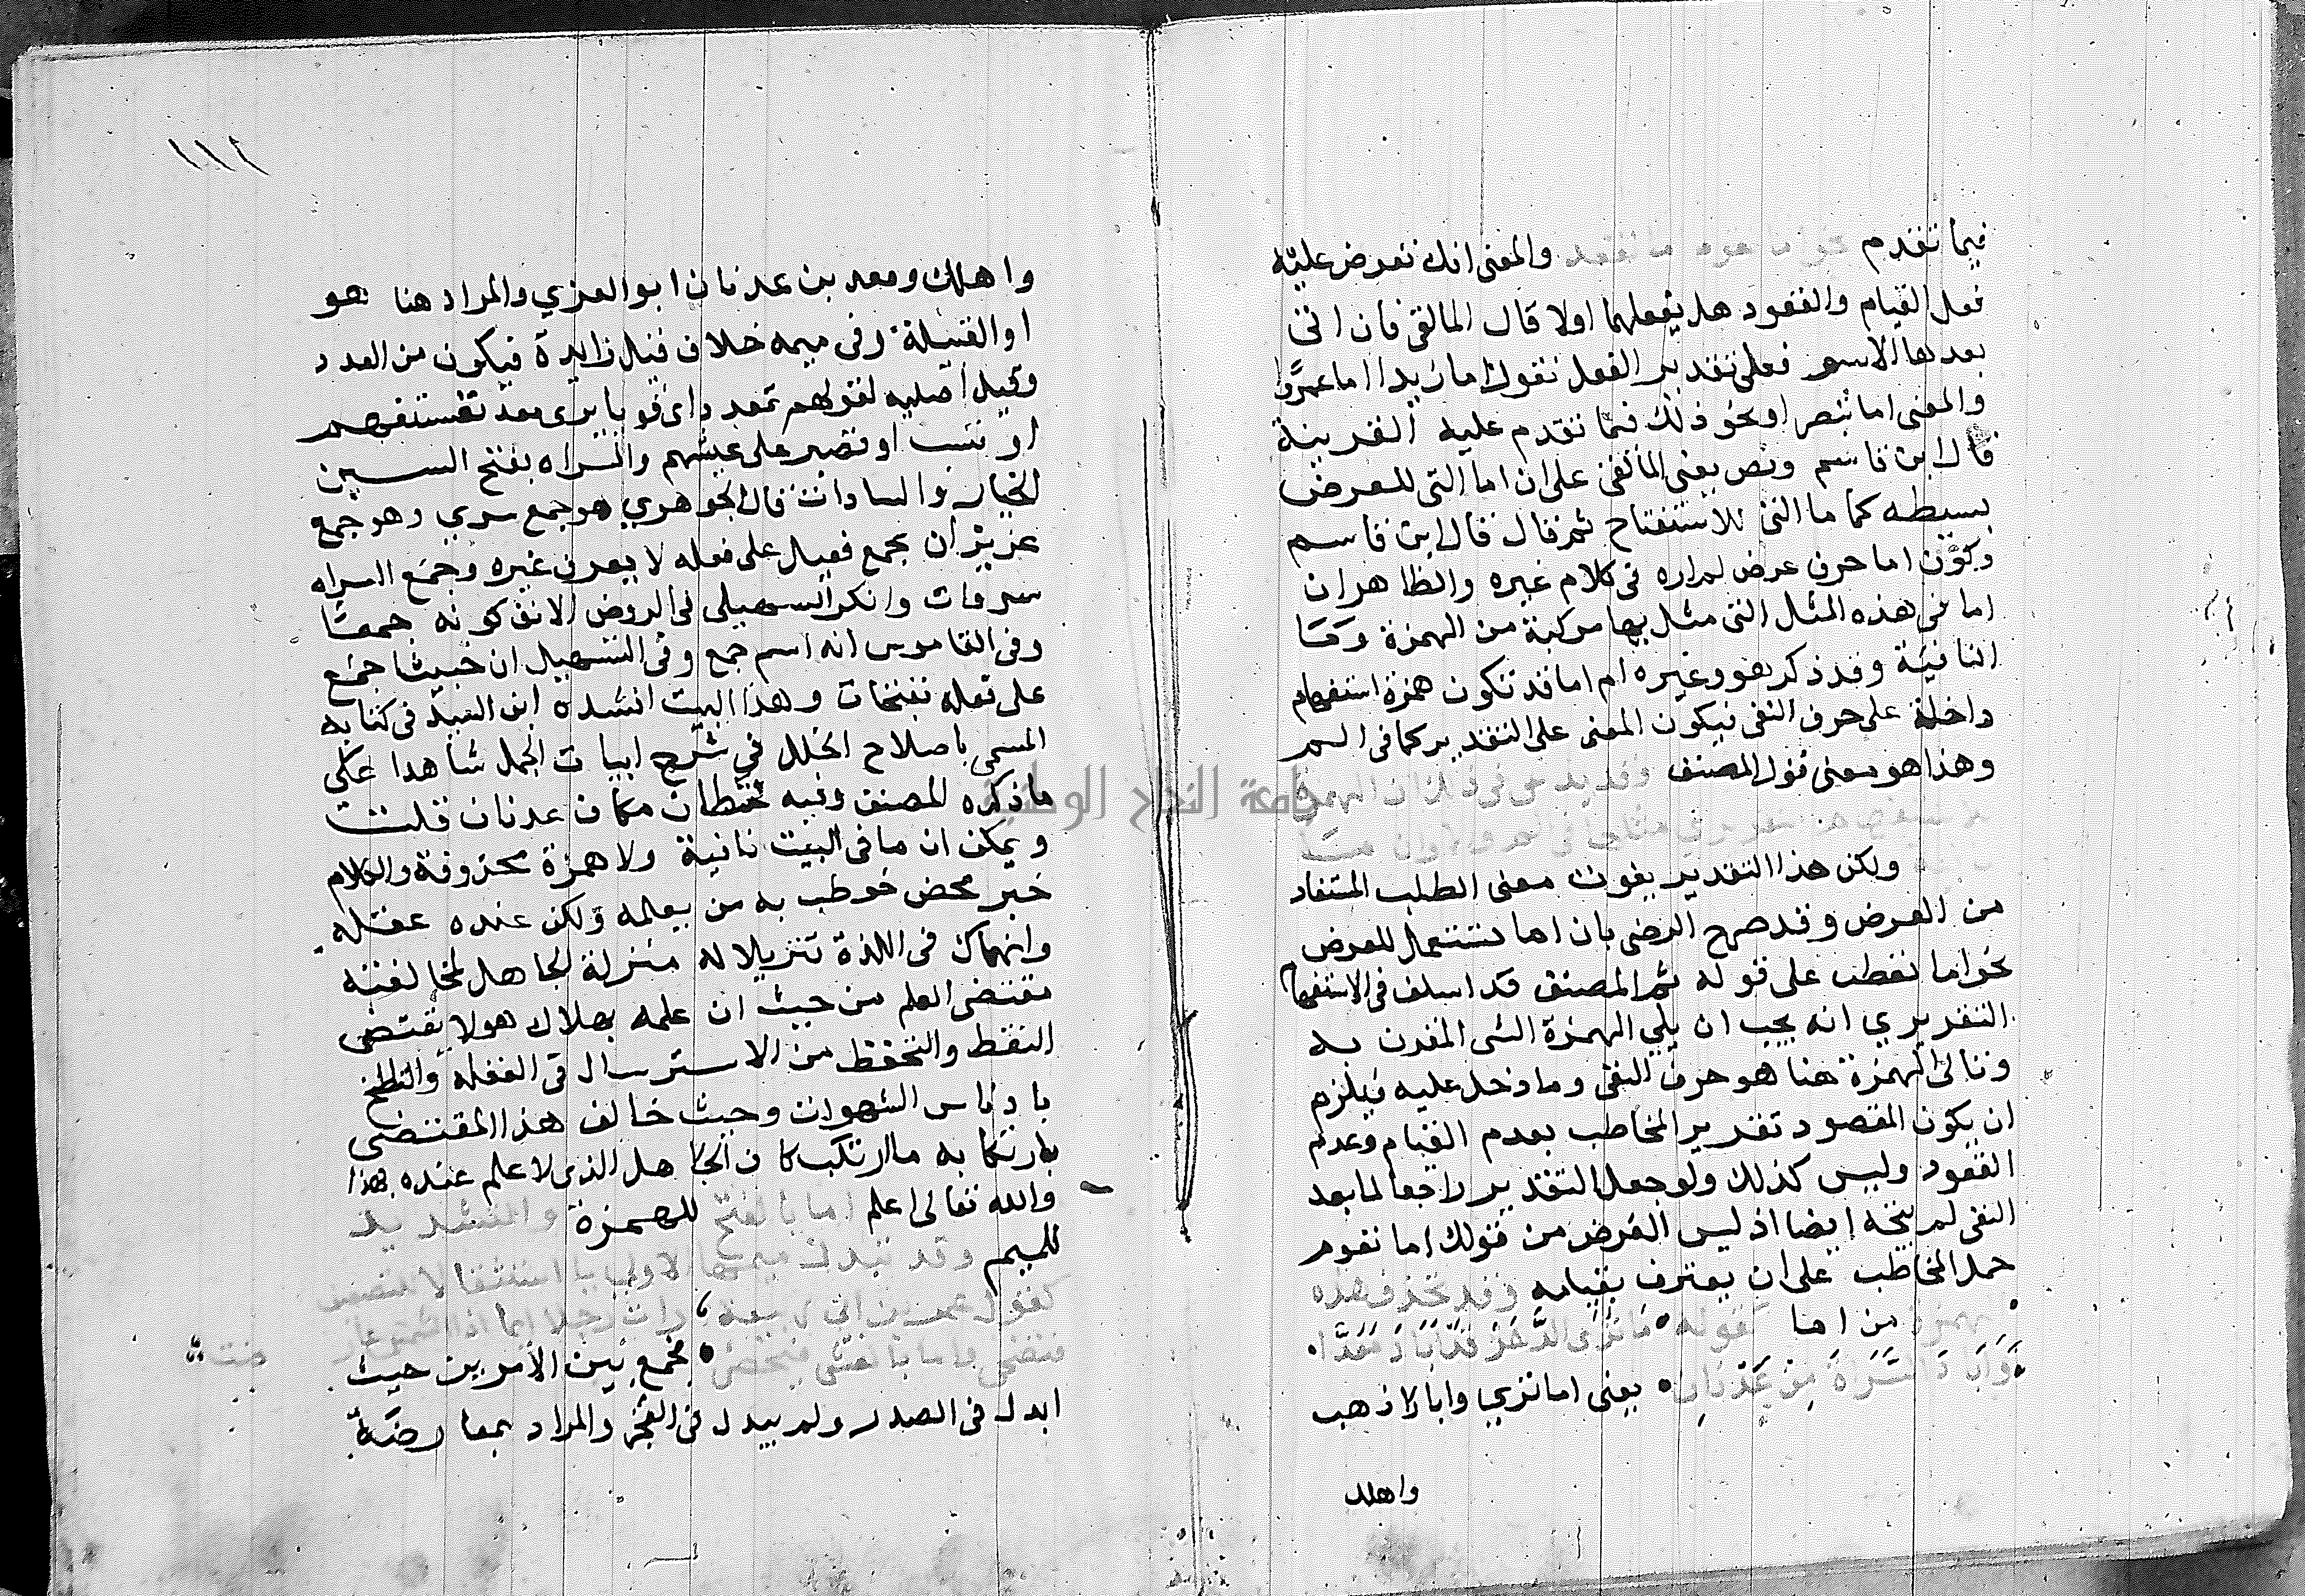 فيما تقدم نحو اما تقوم اما تقعد والمعنى انك تعرض عليه
فعل القيام والقعود هل يفعلهما اولا قال المالقى فان اتى
بعدها الاسم فعلى تقدير الفعل تقول اما زيدا اما عمرًا
والمعنى اما تبصر او نحو ذلك فما تقدم عليه القرينة
قال ابن قاسم ونص يعنى المالقى على ان اما التى للعرض
بسيطه كما ما التى للاستفتاح ثم قال قال ابن قاسم
وكون اما حرف عرض لم اره فى كلام غيره والظاهر ان
اما فى هذه المثل التى مثل بها مركبة من الهمزة وما
النافية وقد ذكر هو وغيره ام اما قد تكون همزة استفهام
داخلة على حرف النفى فيكون المعنى على التقدير كما فى الم
وهذا هو معنى قول المصنف وقد يدعى فى ذلك ان الهمزة
وان ما
ولكن هذا التقدير يفوت معنى الطلب المستفاد
من العرض وقد صرح الرضى بان اما تستعمل للعرض
نحو اما تعطف على قوله ثم المصنف قد اسلف فى الاستفهام
التقريري انه يجب ان يلي الهمزة الشى المقرر به
وتالى الهمزة هنا هو حرف النفى وما دخل عليه فيلزم
ان يكون المقصود تقرير المخاطب بعدم القيام وعدم
القعود وليس كذلك ولو جعل التقدير راجعا لما بعد
النفى لم يتجه ايضا اذ ليس الغرض من قولك اما تقوم
حمل المخاطب على ان يعترف بقيامه وقد تحذف هذه
الهمزة من اما كقوله • مَا تَرَى الدَّهْرَ قَدْ اَبَادَ مَعَدًّا •
• وَاَبَادَ السَّرَاةَ مِنْ عَدْنَانِ • يعنى اما تري وابا لا ذهب
واهلك
١١١
واهلك ومعد بن عدنان ابو العزي والمراد هنا هو
او القبيلة وفى ميمه خلاف قيل زايدة فيكون من العدد
وقيل اصليه لقولهم تمعدد اى قويا يرى معد تقستفهم
او نسب او تصبر على عيشهم والسراه بفتح السين
الخيار والسادات قال الجوهري هو جمع سري وهو جمع
عزيز ان يجمع فعيل على فعله لا يعرف غيره وجمع السراه
سروات وانكر السهيلى فى الروض الانف كونه جمعا
وفى القاموس انه اسم جمع وفى التسهيل ان خبيثا جمع
على فعله بفتحات وهذا البيت انشده ابن السيد فى كتابه
المسمى باصلاح الخلل في شرح ابيات الجمل شاهدا على
ما ذكره المصنف وفيه قحطان مكان عدنان قلت
ويمكن ان ما فى البيت نافية ولا همزة محذوفة والكلام
خبر محض خوطب به من يعلمه ولكن عنده غفله
وانهماك فى اللذة تنزيلا له منزلة الجاهل لمخالفته
مقتضى العلم من حيث ان علمه بهلاك هولا يقتضى
التيقظ والتحفظ من الاسترسال فى الغفله والتلطخ
بادناس الشهوات وحيث خالف هذا المقتضى
بارتكابه ما ارتكب كان كالجاهل الذى لا علم عنده بهذا
والله تعالى اعلم اما بالفتح للهمزة والتشديد
للميم وقد تبدل ميمها الاولى يا استثقالا للتضعيف
كقول عمر بن ابى ربيعة ، رات رجلا ايما اذا الشمس عارضت
فتضحى واما بالعشى فيخصر • فجمع بين الامرين حيث
ابدل فى الصدر ولم يبدل فى العجز والمراد بمعارضة